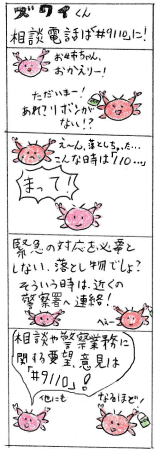 ズワイくん
相談電話は#9110に!
お姉ちゃん、
おかえりー!
ただいまー!
あれ?リボンが
ない!?
え〜ん、落としちゃった…
こんな時は「110…」
まって!!
緊急の対応を必要と
しない、落とし物でしょ?
そういう時は、近くの
警察署へ連絡!
へぇー
相談や警察業務に
関する要望、意見は
「#9110」!
他にも
なるほど!